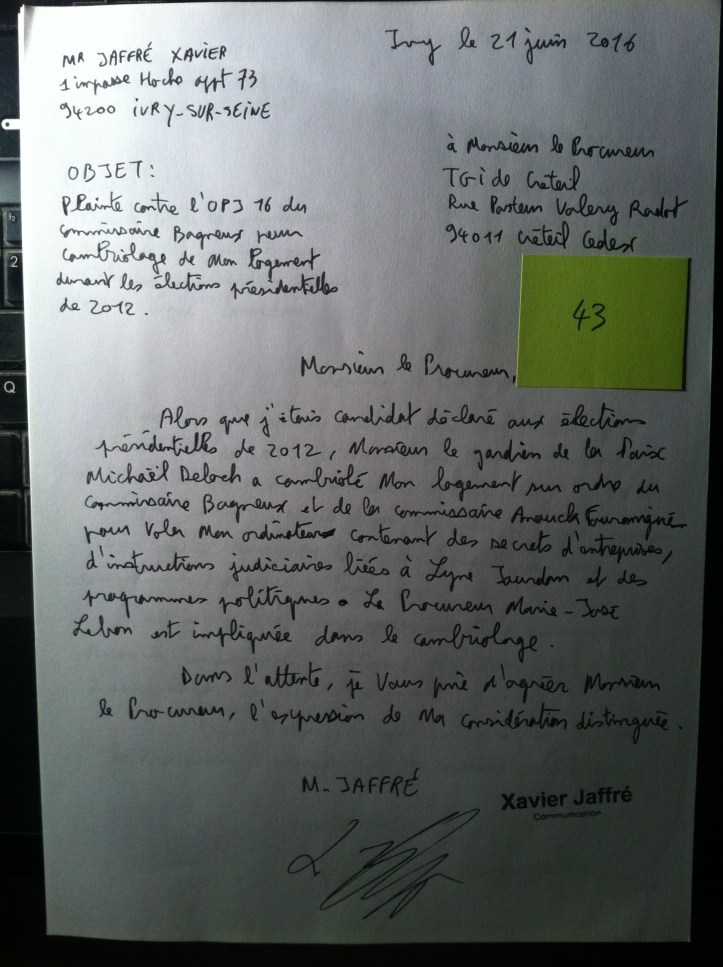 Ivry le 21 juin 2016
MR JAFFRÉ XAVIER
1 impasse Hoche appt 73
94200 IVRY-SUR-SEINE
à Monsieur le Procureur
TGI de Créteil
Rue Pasteur Valery Radot
94011 Créteil Cedex
OBJET:
Plainte contre l'OPJ 16 du
commissaire Bagneux pour
cambriolage de Mon logement
durant les élections présidentielles
de 2012.
43
Monsieur le Procureur,
Alors que j'étais candidat déclaré aux élections
présidentielles de 2012, Monsieur le gardien de la Paix
Michaël Deloch a cambriolé Mon logement sur ordre du
Commissaire Bagneux et de la commissaire Anouck
pour Voler Mon ordinateur contenant des secrets d'entreprises,
d'instructions judiciaires liées à Lyne Jourdan et des
programmes politiques. Le Procureur Marie-José
Lebon est impliquée dans le cambriolage.
Dans l'attente, je Vous prie d'agréer Monsieur
le Procureur, l'expression de Ma considération distinguée.
M. JAFFRÉ
Xavier Jaffré
Communication